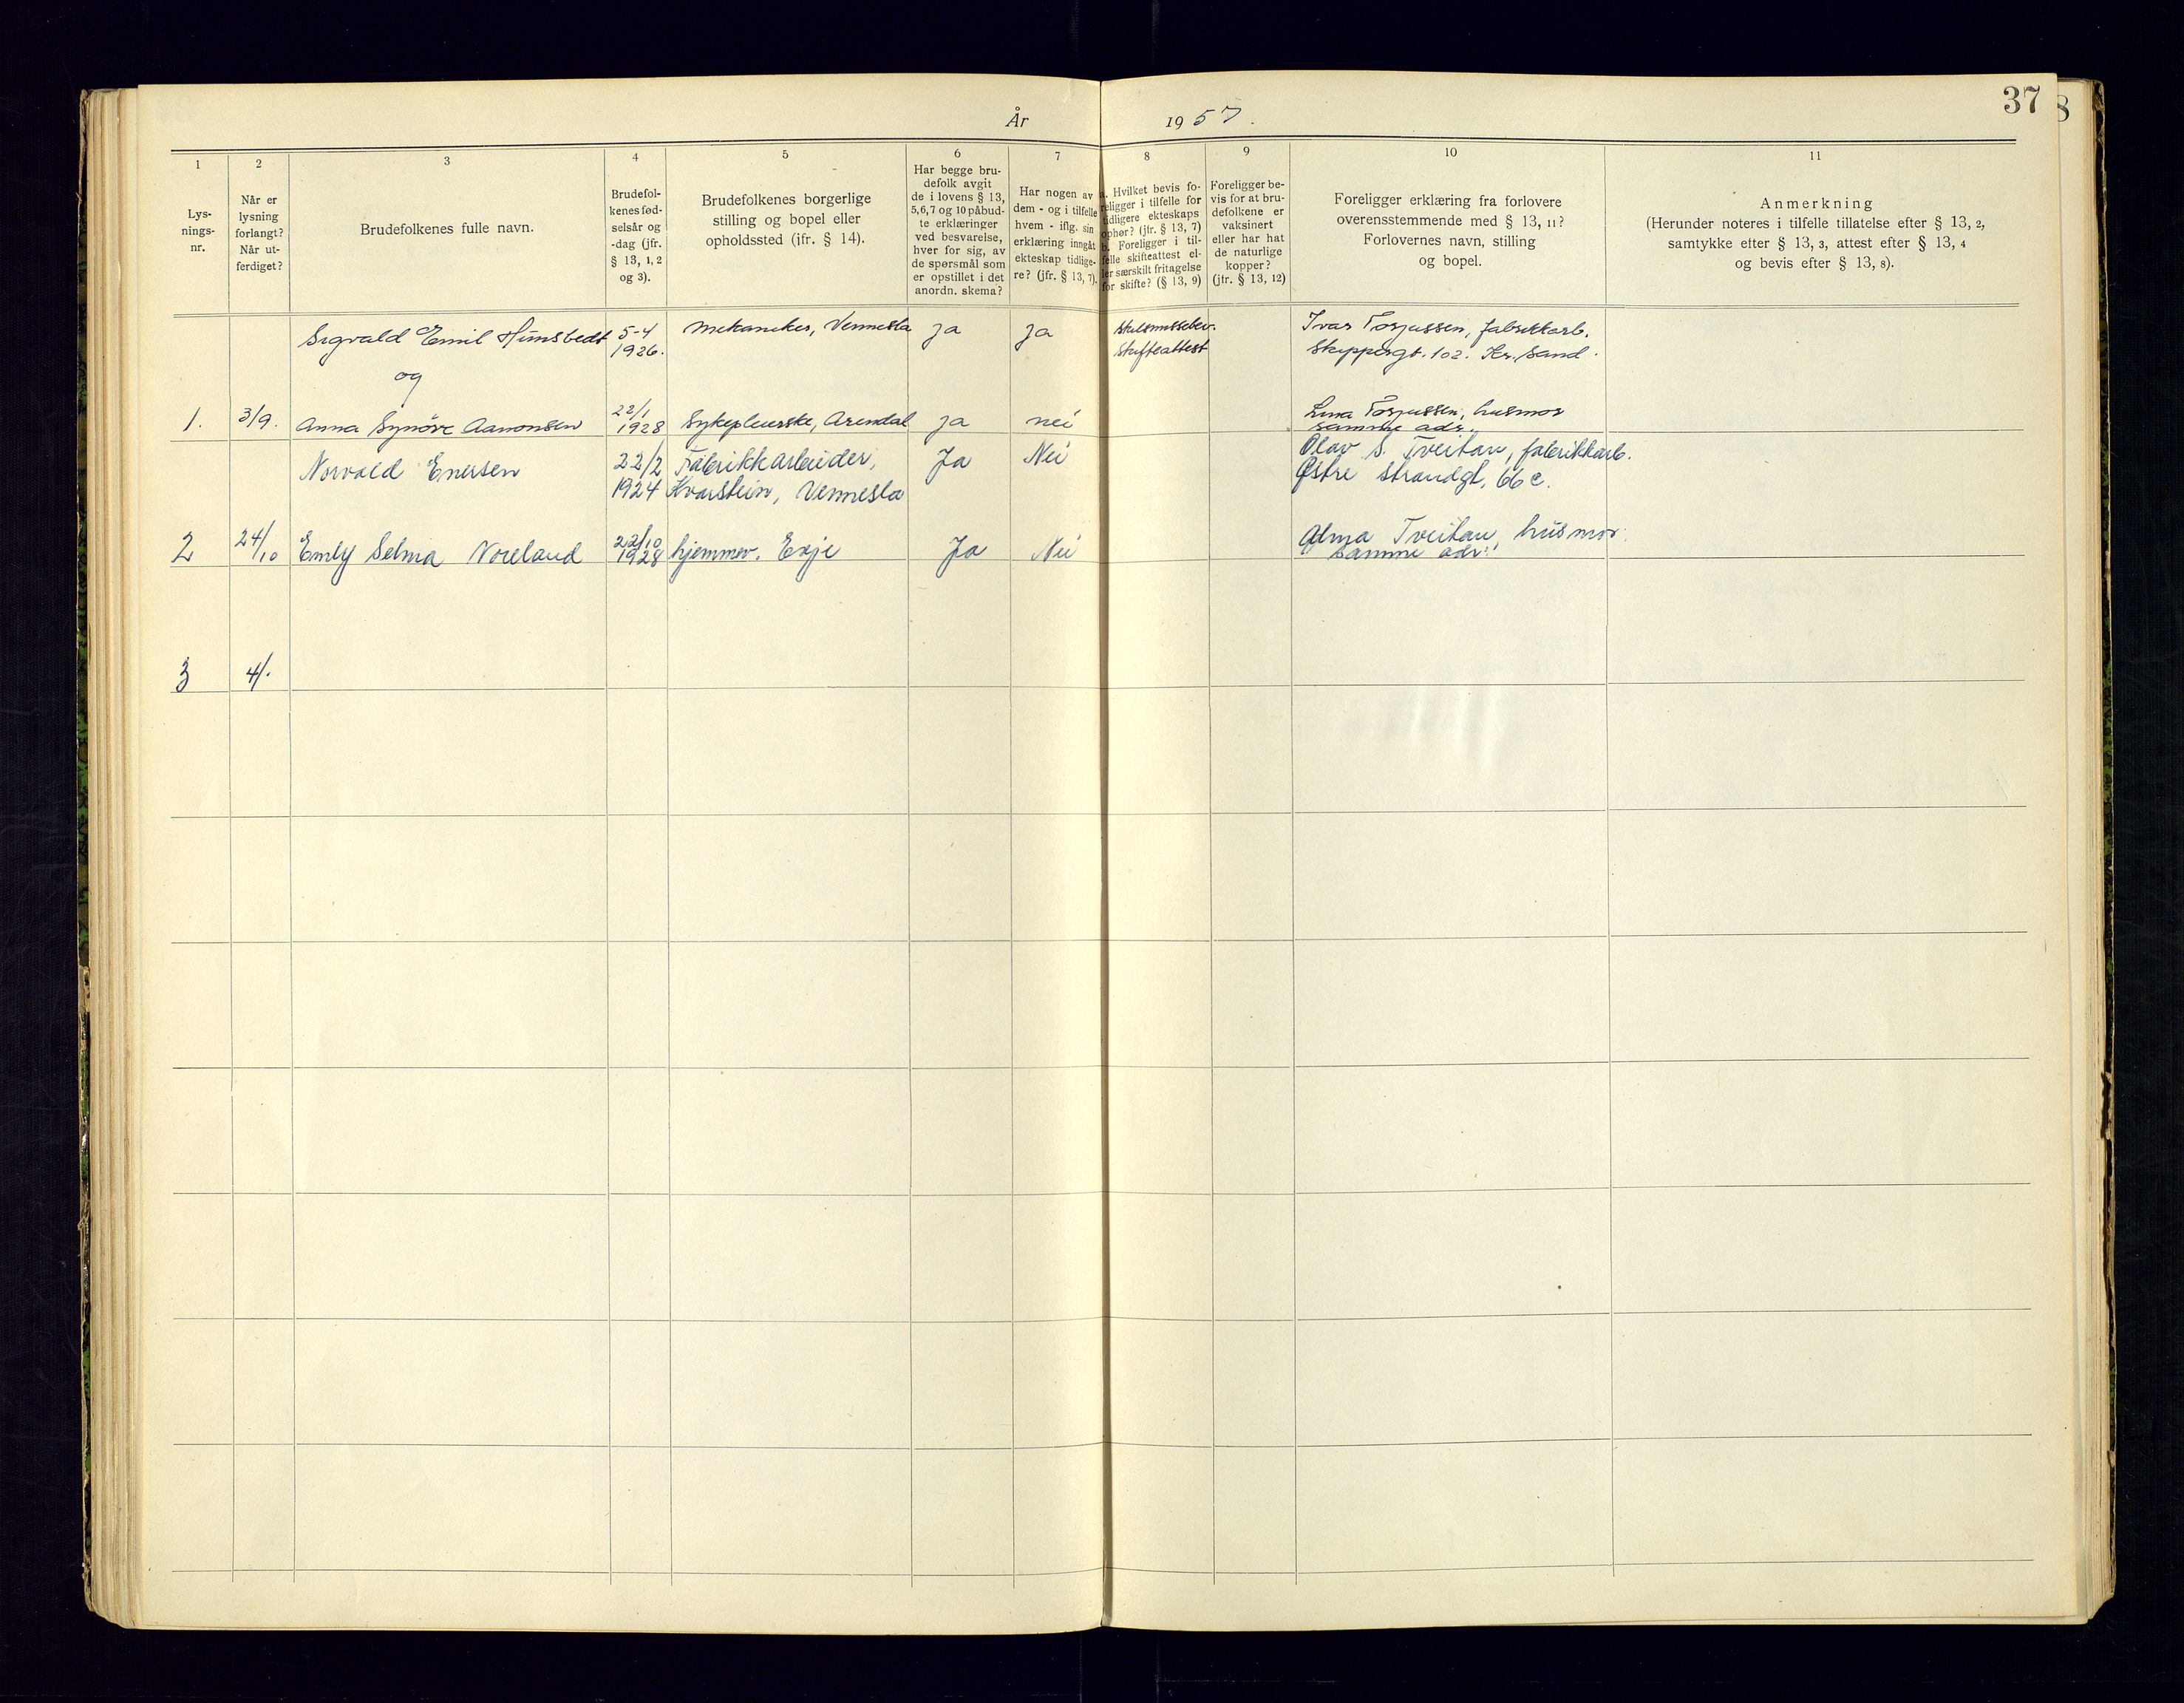 År 1957.
37
8
1
2
3
4
5
6
7
8
9
10
11
Lys-
nings-
nr.
Når er
lysning
forlangt?
Når ut-
ferdiget?
Brudefolkenes fulle navn.
Brudefol-
kenes fød-
selsår og
-dag (jfr.
§ 13, 1, 2
og 3).
Brudefolkenes borgerlige
stilling og bopel eller
opholdssted (jfr. § 14).
Har begge bru-
defolk avgit
de i lovens § 13,
5,6,7 og 10 påbud-
te erklæringer
ved besvarelse,
hver for sig, av
de spørsmål som
er opstillet i det
anordn. skema?
Har nogen av
dem - og i tilfelle
hvem - iflg. sin
erklæring inngåt
ekteskap tidlige-
re? (jfr. § 13, 7).
a. Hvilket bevis fo-
religger i tilfelle for
tidligere ekteskaps
ophør? (jfr. § 13, 7)
b. Foreligger i til-
felle skifteattest el-
ler særskilt fritagelse
for skifte? (§ 13, 9)
Foreligger be-
vis for at bru-
defolkene er
vaksinert
eller har hat
de naturlige
kopper?
(jfr. § 13, 12)
Foreligger erklæring fra forlovere
overensstemmende med § 13, 11?
Forlovernes navn, stilling
og bopel.
Anmerkning
(Herunder noteres i tilfelle tillatelse efter § 13, 2,
samtykke efter § 13, 3, attest efter § 13, 4
og bevis efter § 13, 8).
Sigvald Emil Himstedt
5-4
1926.
Mekaniker, Vennesla
ja
ja
Skilsmissebev.
Skifteattest
Ivar Torjussen, fabrikkarb.
Skippergt. 102. Kr. Sand.
og
1.
3/9.
Anna Synöve Aanonsen
22/1
1928
Sykepleierske, Arendal
ja
nei
Torjussen, husmor
samme adr.
Norvald Enersen
22/2
1924
Fabrikkarbeider,
Kvarstein, Vennesla
Ja
Nei
Olav S. Tveitan, fabrikkarb.
Østre strandgt, 66 c.
2
24/10
Emly Selma Noreland
22/10
1928
hjemmev. Evje
Ja
Nei
Alma Tveitan, husmor.
samme adr.
3
4/.